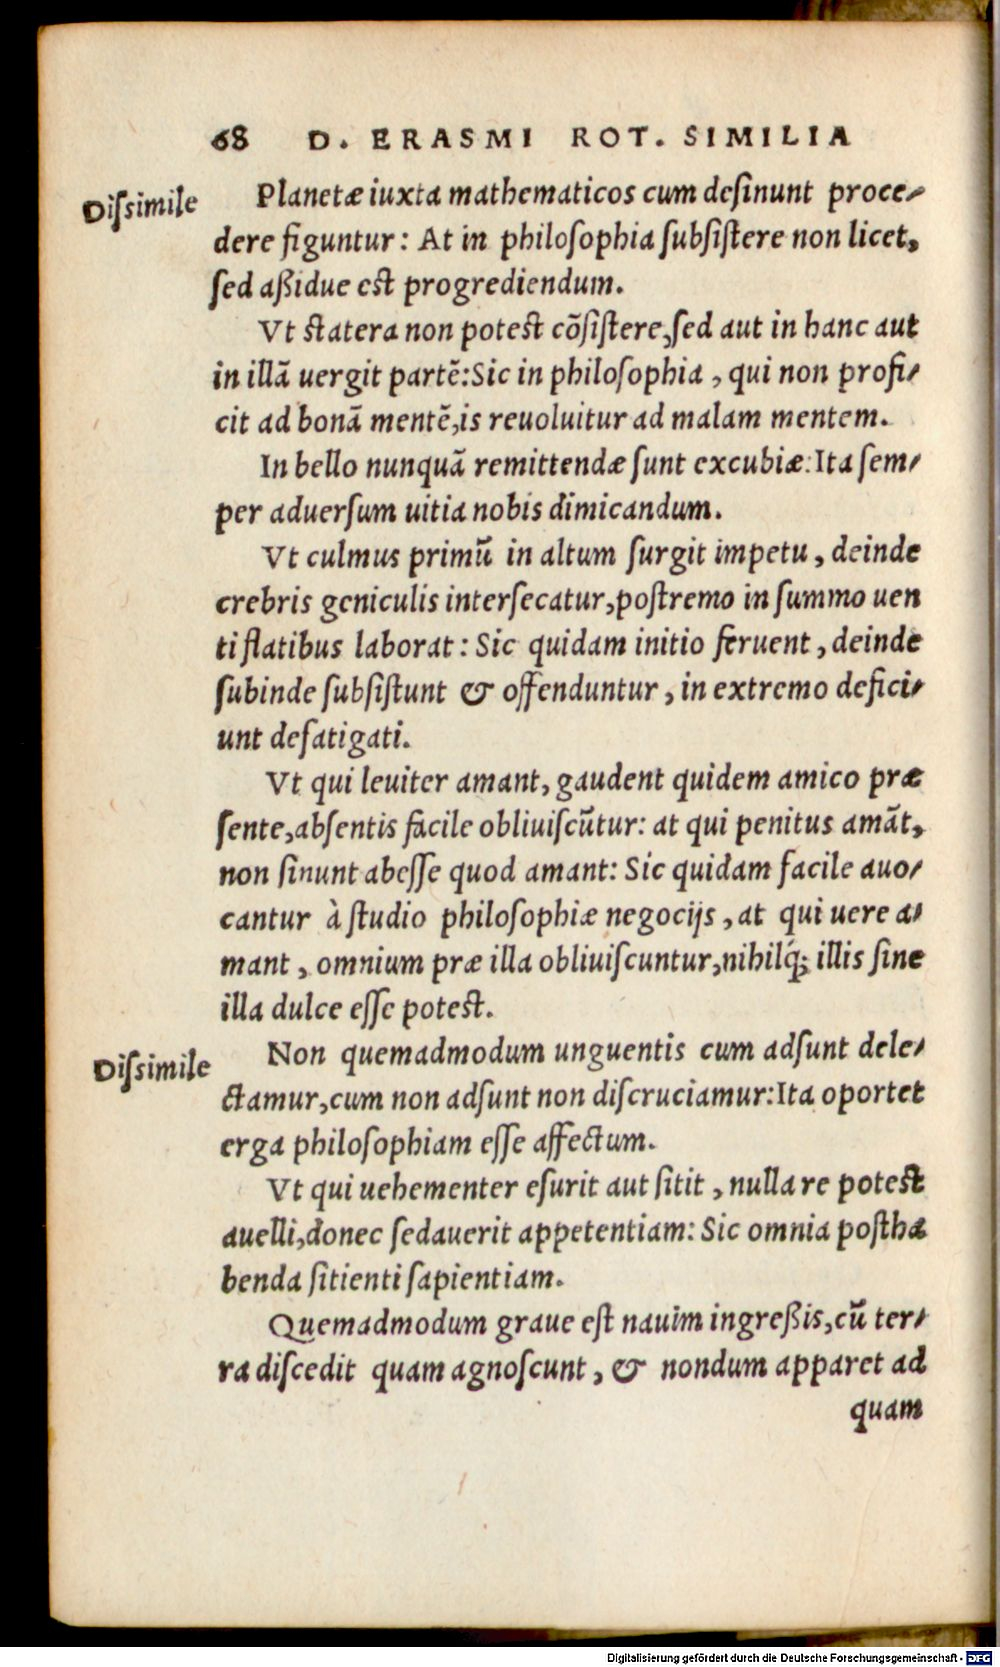 68 D. ERASMI ROT. SIMILIA
Diſsimile
Planetæ iuxta mathematicos cum deſinunt proce-
dere figuntur: At in philoſophia ſubſiſtere non licet,
ſed aßidue est progrediendum.
Vt statera non potest cõſiſtere, ſed aut in hanc aut
in illã uergit partẽ: Sic in philoſophia, qui non profi-
cit ad bonã mentẽ, is reuoluitur ad malam mentem.
In bello nunquã remittendæ ſunt excubiæ: Ita ſem-
per aduerſum uitia nobis dimicandum.
Vt culmus primũ in altum ſurgit impetu, deinde
crebris geniculis interſecatur, poſtremo in ſummo uen
ti flatibus laborat: Sic quidam initio feruent, deinde
ſubinde ſubſiſtunt & offenduntur, in extremo defici-
unt defatigati.
Vt qui leuiter amant, gaudent quidem amico præ
ſente, abſentis facile obliuiſcũtur: at qui penitus amãt,
non ſinunt abeſſe quod amant: Sic quidam facile auo-
cantur à ſtudio philoſophiæ negocijs, at qui uere a-
mant, omnium præ illa obliuiſcuntur, nihilq́; illis ſine
illa dulce eſſe potest.
Diſsimile
Non quemadmodum unguentis cum adſunt dele-
ctamur, cum non adſunt non diſcruciamur: Ita oportet
erga philoſophiam eſſe affectum.
Vt qui uehementer eſurit aut ſitit, nulla re potest
auelli, donec ſedauerit appetentiam: Sic omnia poſthæ
benda ſitienti ſapientiam.
Quemadmodum graue eſt nauim ingreßis, cũ ter-
ra diſcedit quam agnoſcunt, & nondum apparet ad
quam
Digitalisierung gefördert durch die Deutsche Forschungsgemeinschaft - DFG